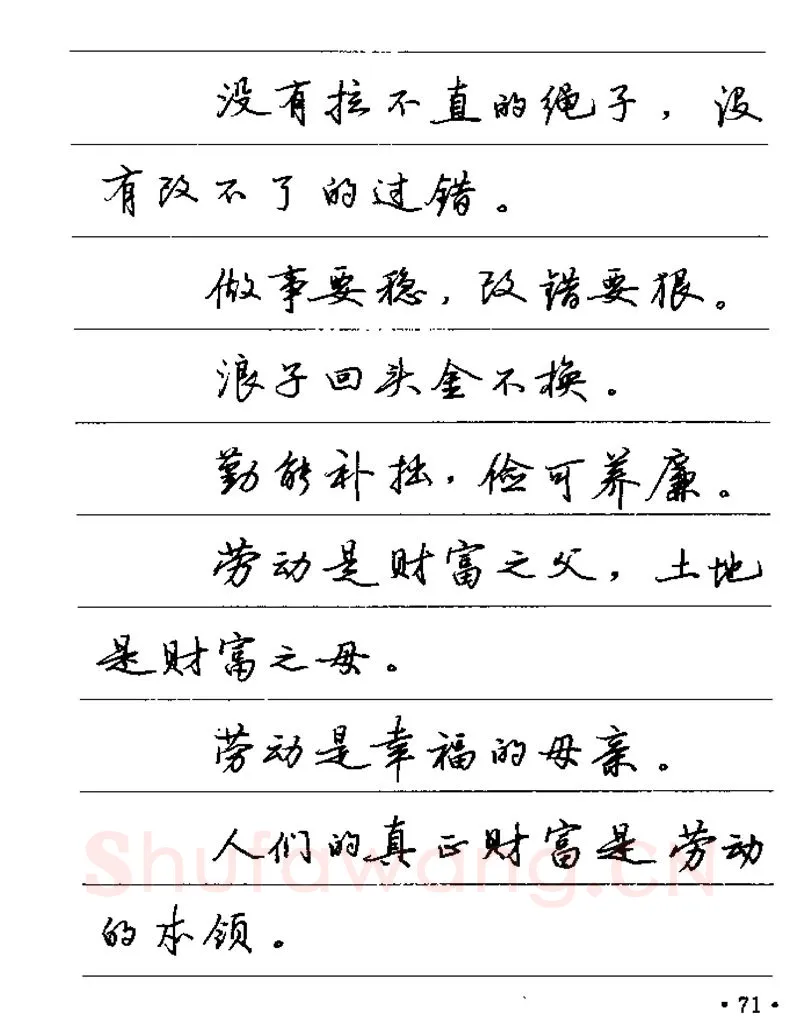 没有拉不直的绳子，没
有改不了的过错。
做事要稳，改错要狠。
浪子回头金不换。
勤能补拙，俭可养廉。
劳动是财富之父，土地
是财富之母。
劳动是幸福的母亲。
人们的真正财富是劳动
的本领。
Shufawang.CN
·71·